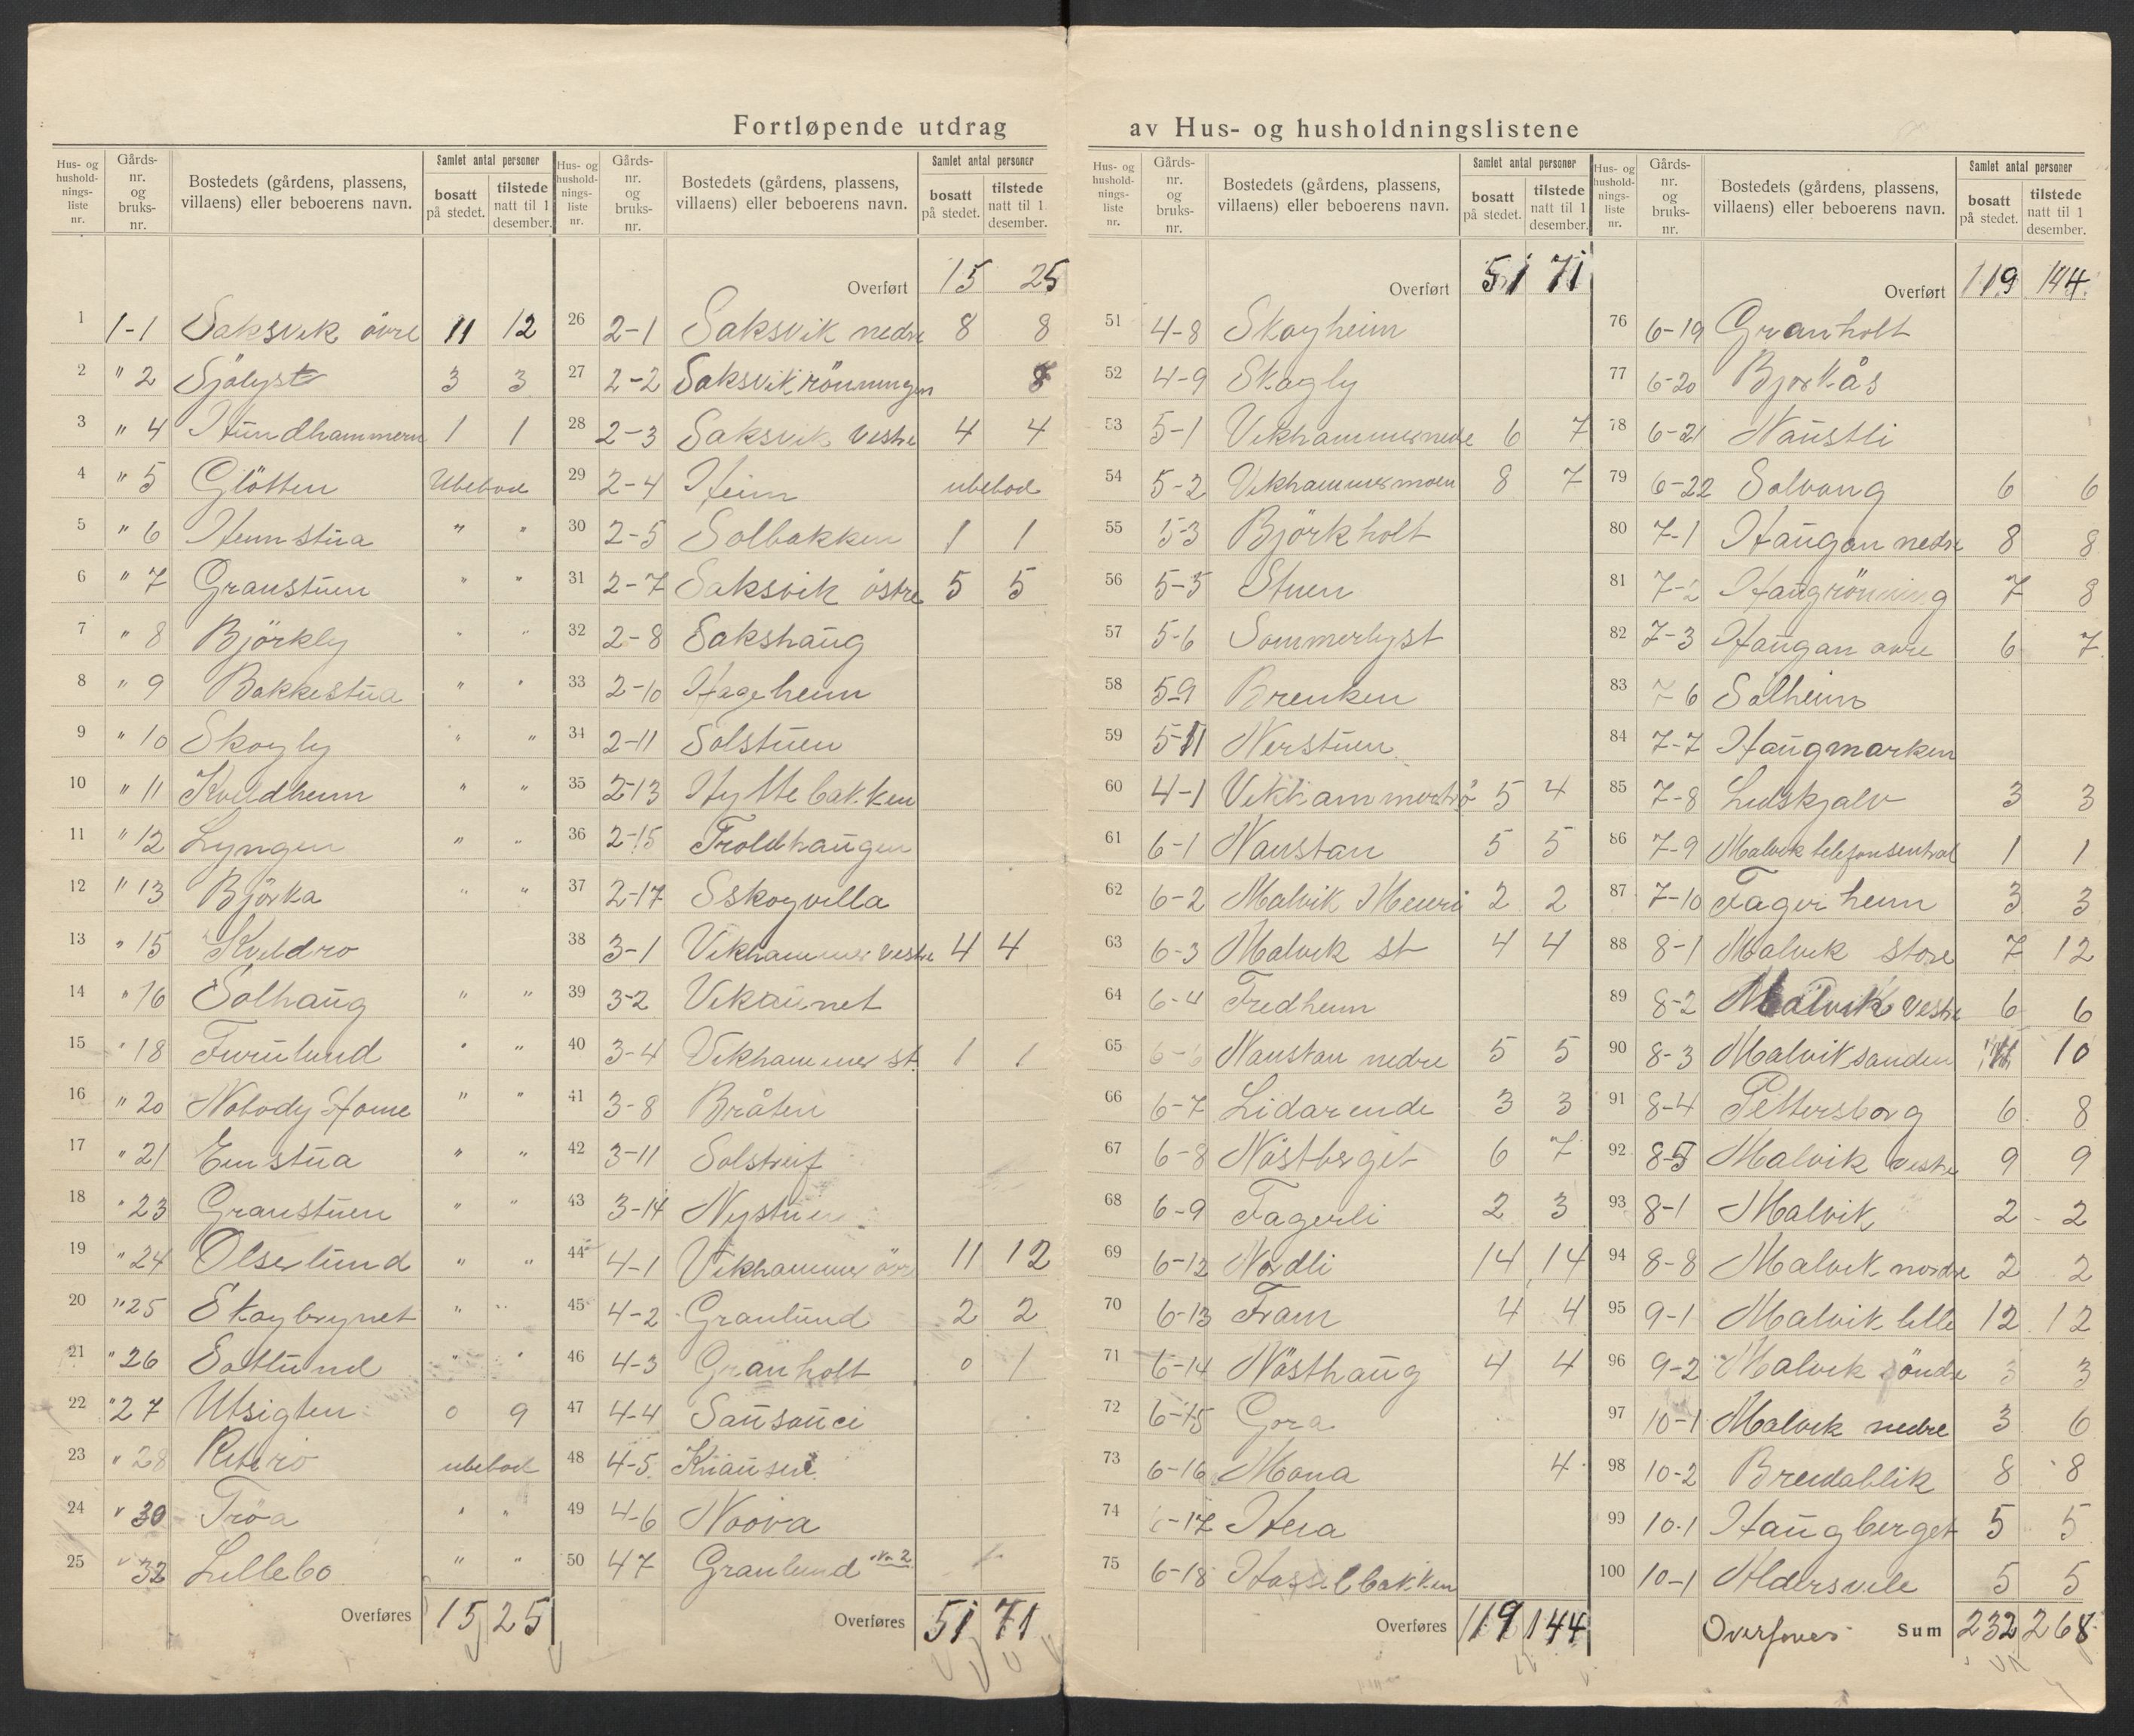 Fortløpende utdrag av Hus- og husholdningslistene
Hus- og husholdningsliste nr. | Gårds-nr. og bruks-nr. | Bostedets (gårdens, plassens, villaens) eller beboerens navn. | Samlet antal personer | bosatt på stedet. | tilstede natt til 1 desember.
1 1-1 Saksvik övre 11 12
2 " 2 Sjölyst 3 3
3 " 4 Hundhammern 1 1
4 " 5 Glötten Ubebod
5 " 6 Heimstua " "
6 " 7 Granstuen " "
7 " 8 Björkly " "
8 " 9 Bakkestua " "
9 " 10 Skogly " "
10 " 11 Kveldheim " "
11 " 12 Lyngen " "
12 " 13 Björka " "
13 " 15 Kveldro
14 " 16 Solhaug " "
15 " 18 Furulund " "
16 " 20 Nobody Home " "
17 " 21 Emstua " "
18 " 23 Granstuen " "
19 " 24 Olserlund " "
20 " 25 Skogbrynet " "
21 " 26 Sollund " "
22 " 27 Utsigten 0 9
23 " 28 Retiro ubebod
24 " 30 Tröa " "
25 " 32 Lillebo " "
Overføres 15 25
Hus- og husholdningsliste nr. | Gårds-nr. og bruks-nr. | Bostedets (gårdens, plassens, villaens) eller beboerens navn. | Samlet antal personer | bosatt på stedet. | tilstede natt til 1 desember.
Overført 15 25
26 2-1 Saksvik nedre 8 8
27 2-2 Saksvikrönningen 8
28 2-3 Saksvik vestre 4 4
29 2-4 Heim ubebod
30 2-5 Solbakken 1 1
31 2-7 Saksvik östre 5 5
32 2-8 Sakshaug
33 2-10 Hageheim
34 2-11 Solstuen
35 2-13 Hyttebakken
36 2-15 Troldhaugen
37 2-17 Sskogvilla
38 3-1 Vikhammer vestre 4 4
39 3-2 Vikaunet
40 3-4 Vikhammer st. 1 1
41 3-8 Bråten
42 3-11 Solstreif
43 3-14 Nystuen
44 4-1 Vikhammer öv 11 12
45 4-2 Granlund 2 2
46 4-3 Granholt 0 1
47 4-4 Sausouci
48 4-5. Knausen
49 4-6 Noova
50 4 7 Granlund nr. 2
Overføres 51 71
Hus- og husholdningsliste nr. | Gårds-nr. og bruks-nr. | Bostedets (gårdens, plassens, villaens) eller beboerens navn. | Samlet antal personer | bosatt på stedet. | tilstede natt til 1 desember.
Overført 51 71
51 4-8 Skogheim
52 4-9 Skogly
53 5-1 Vikhammer nedre 6 7
54 5-2 Vikhammermoen 8 7
55 5-3 Björkholt
56 5-5 Stuen
57 5-6 Sommerlyst
58 5-9 Brenken
59 5-11 Nerstuen
60 4-1 Vikhammertrö 5 4
61 6-1 Naustan 5 5
62 6-2 Malvik Meieri 2 2
63 6-3 Malvik st 4 4
64 6-4 Fredheim
65 6-6 Naustan nedre 5 5
66 6-7 Lidarende 3 3
67 6-8 Nöstberget 6 7
68 6-9 Fagerli 2 3
69 6-12 Nordli 14 14
70 6-13 Fram 4 4
71 6-14 Nösthaug 4 4
72 6-15 Gora
73 6-16 Mona 4
74 6-17 Heia
75 6-18 Hasselbakken
Overføres 119 144
Hus- og husholdningsliste nr. | Gårds-nr. og bruks-nr. | Bostedets (gårdens, plassens, villaens) eller beboerens navn. | Samlet antal personer | bosatt på stedet. | tilstede natt til 1 desember.
Overført 119 144
76 6-19 Granholt
77 6-20 Bjorkås
78 6-21 Naustli
79 6-22 Solvang 6 6
80 7-1 Haugan nedre 8 8
81 7-2 Haugrönning 7 8
82 7-3 Haugan övre 6 7
83 7-6 Solheim
84 7-7 Haugmarken
85 7-8 Lidskjalv 3 3
86 7-9 Malvik telefonsentral 1 1
87 7-10 Fagerheim 3 3
88 8-1 Malvik store 7 12
89 8-2 Malvik vestre 6 6
90 8-3 Malviksanden 11 10
91 8-4 Pettersborg 6 8
92 8-5 Malvik vestre 9 9
93 8-1 Malvik 2 2
94 8-8 Malvik nordre 2 2
95 9-1 Malvik lille 12 12
96 9-2 Malvik söndre 3 3
97 10-1 Malvik nedre 3 6
98 10-2 Breidablik 8 8
99 10.1 Haugberget 5 5
100 10-1 Aldersvile 5 5
Overføres Sum 232 268